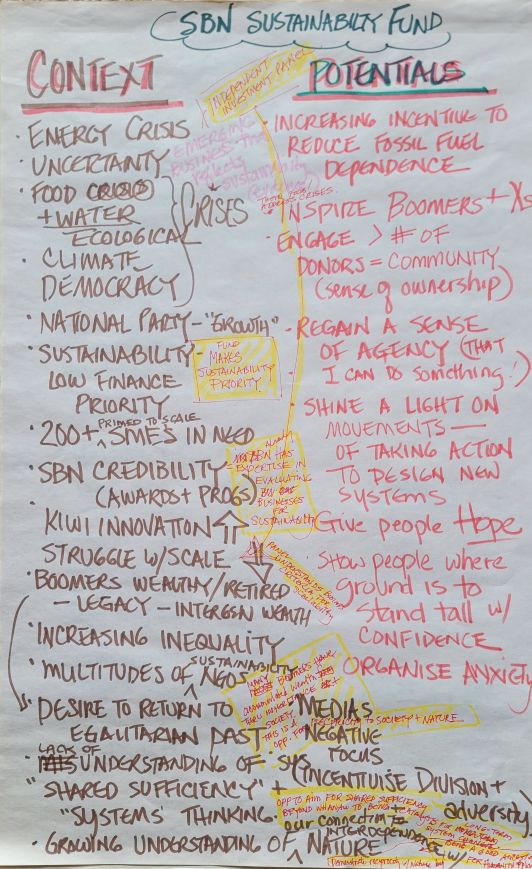 SBN SUSTAINABILTY FUND
CONTEXT
· ENERGY CRISIS
· UNCERTAINTY
· FOOD CRISIS
+ WATER
ECOLOGICAL
· CLIMATE
· DEMOCRACY
CRISES
· NATIONAL PARTY - "GROWTH"
· SUSTAINABILITY -
LOW FINANCE
PRIORITY
PRIMED TO SCALE
· 200+ ^ SMES IN NEED
· SBN CREDIBILITY
(AWARDS + PROGS)
· KIWI INNOVATION
STRUGGLE W/SCALE
· BOOMERS WEALTHY/RETIRED
- LEGACY - INTERGEN WEALTH
· INCREASING INEQUALITY
SUSTAINABILITY
· MULTITUDES OF ^ NGOS
· DESIRE TO RETURN TO
EGALITARIAN PAST
LACK OF
· UNDERSTANDING OF SYS
"SHARED SUFFICIENCY" +
"SYSTEMS" THINKING
· GROWING UNDERSTANDING OF ^ NATURE
our connection to
INTERDEPENDENCE w/
· MEDIAS
NEGATIVE
FOCUS
INCENTIVISE DIVISION +
adversity
INDEPENDENT
INVESTMENT PANEL
EMERGING
BUSINESS THAT
sustainability
FUND
MAKES
SUSTAINABILITY
PRIORITY
SBN HAS
EXPERTISE IN
EVALUATING
BUSINESSES
FOR
SUSTAINABILITY
PANEL
BOOMERS HAVE
SOCIETY
THIS IS A
OPP. FOR RECIPROCITY TO SOCIETY + NATURE
OPP TO AIM FOR SHARED SUFFICIENCY
POTENTIALS
· INCREASING INCENTIVE TO
REDUCE FOSSIL FUEL
DEPENDENCE
· INSPIRE BOOMERS + Xs
· ENGAGE > # OF
DONORS = COMMUNITY
(sense of ownership)
· REGAIN A SENSE
OF AGENCY (THAT
I CAN DO something!)
· SHINE A LIGHT ON
MOVEMENTS —
OF TAKING ACTION
TO DESIGN NEW
SYSTEMS
· Give people Hope
Show people where
ground is to
stand tall w/
CONFIDENCE
· ORGANISE ANXIETY